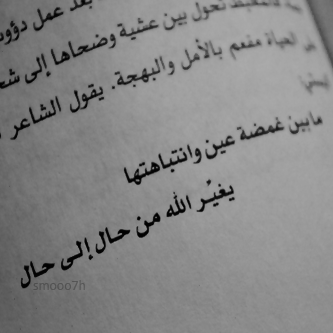 بعد عمل دؤو
تحول بين عشية وضحاها إلى شخ
الحياة مفعم بالأمل والبهجة. يقول الشاعر
مابين غمضة عين وانتباهتها
يغيّر الله من حال إلى حال
smooo7h